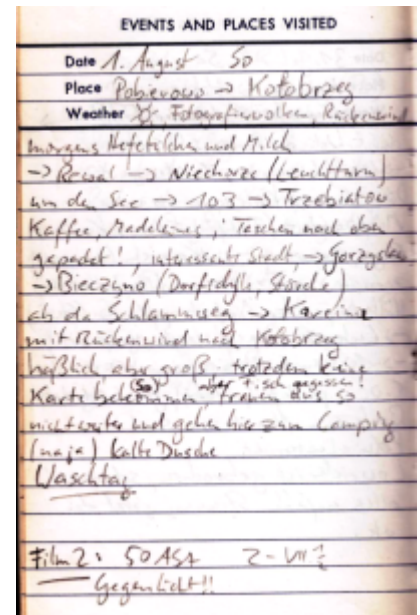 EVENTS AND PLACES VISITED
Date 1. August So
Place Pobierowo → Kołobrzeg
Weather Fotografierwolken, Rückenwind
morgens Hefeteilchen und Milch
→ Rewal → Niechorze (Leuchtturm)
um den See → 103 → Trzebiatów
Kaffee, Madeleines, Taschen nach oben
gepackt!, interessante Stadt, → Gorzysław
→ Bieczyno (Dorfidylle, Störche)
ab da Schlammweg → Karcino
mit Rückenwind nach Kołobrzeg
häßlich aber groß, trotzdem keine
Karte bekommen (So) aber Fisch gegessen! trauen uns so
nicht weiter und gehen hier zum Camping
(naja) kalte Dusche
Waschtag
Film 2: 50 ASA 2-VII
Gegenlicht!!